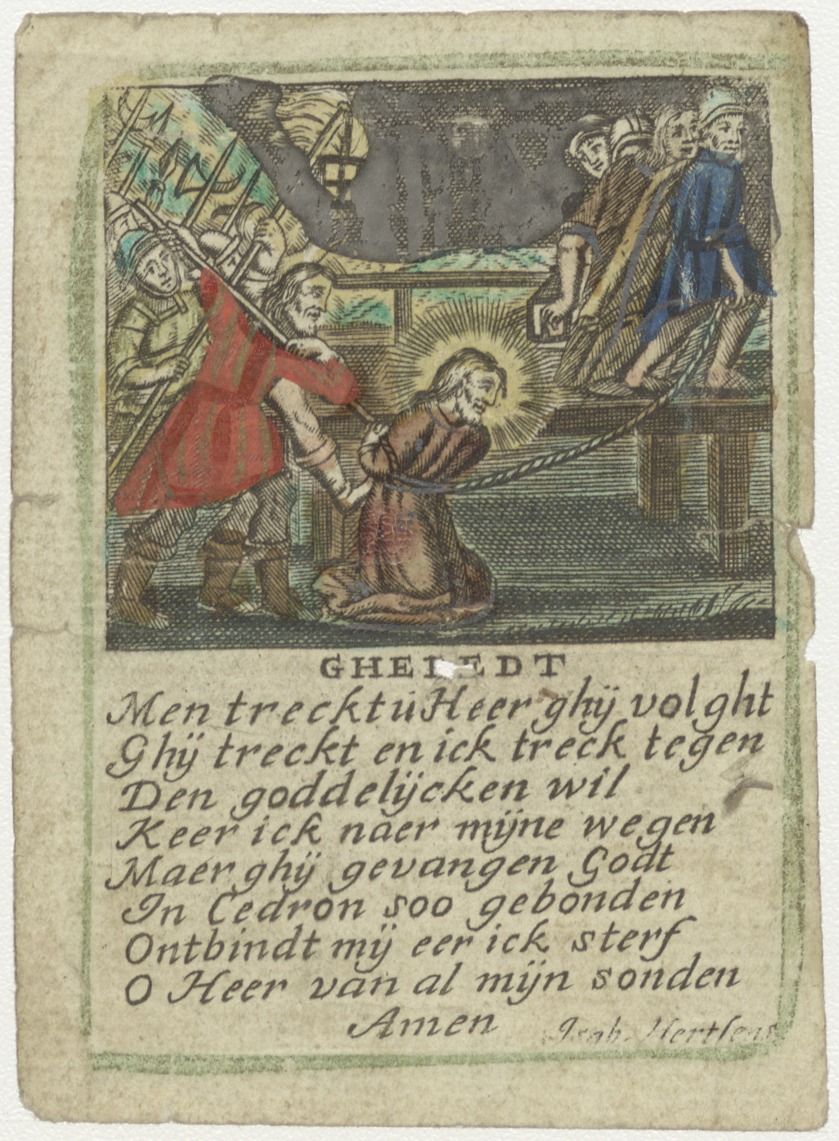 GHEBEDT
Men treckt u Heer ghij volght
Ghij treckt en ick treck tegen
Den goddelijcken wil
Keer ick naer mijne wegen
Maer ghij gevangen Godt
In Cedron soo gebonden
Ontbindt mij eer ick sterf
O Heer van al mijn sonden
Amen
Isab. Hertsens